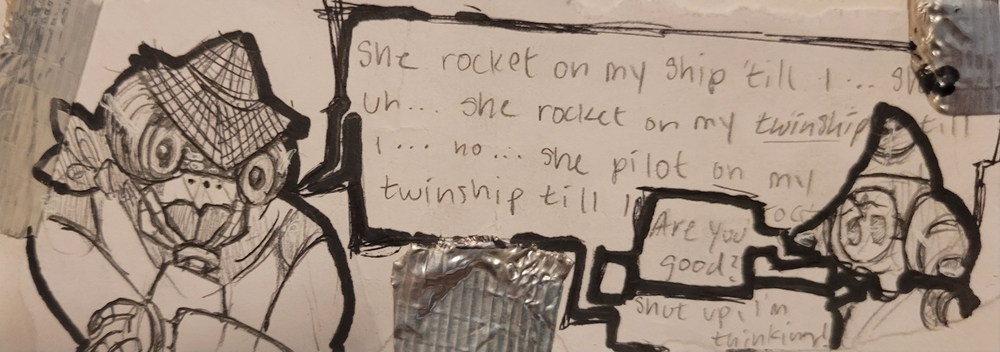 She rocket on my ship 'till I ... sh
uh... she rocket on my twinship till
I ... no ... she pilot on my
twinship till I
Are you
good?
Shut up, I'm
thinking!